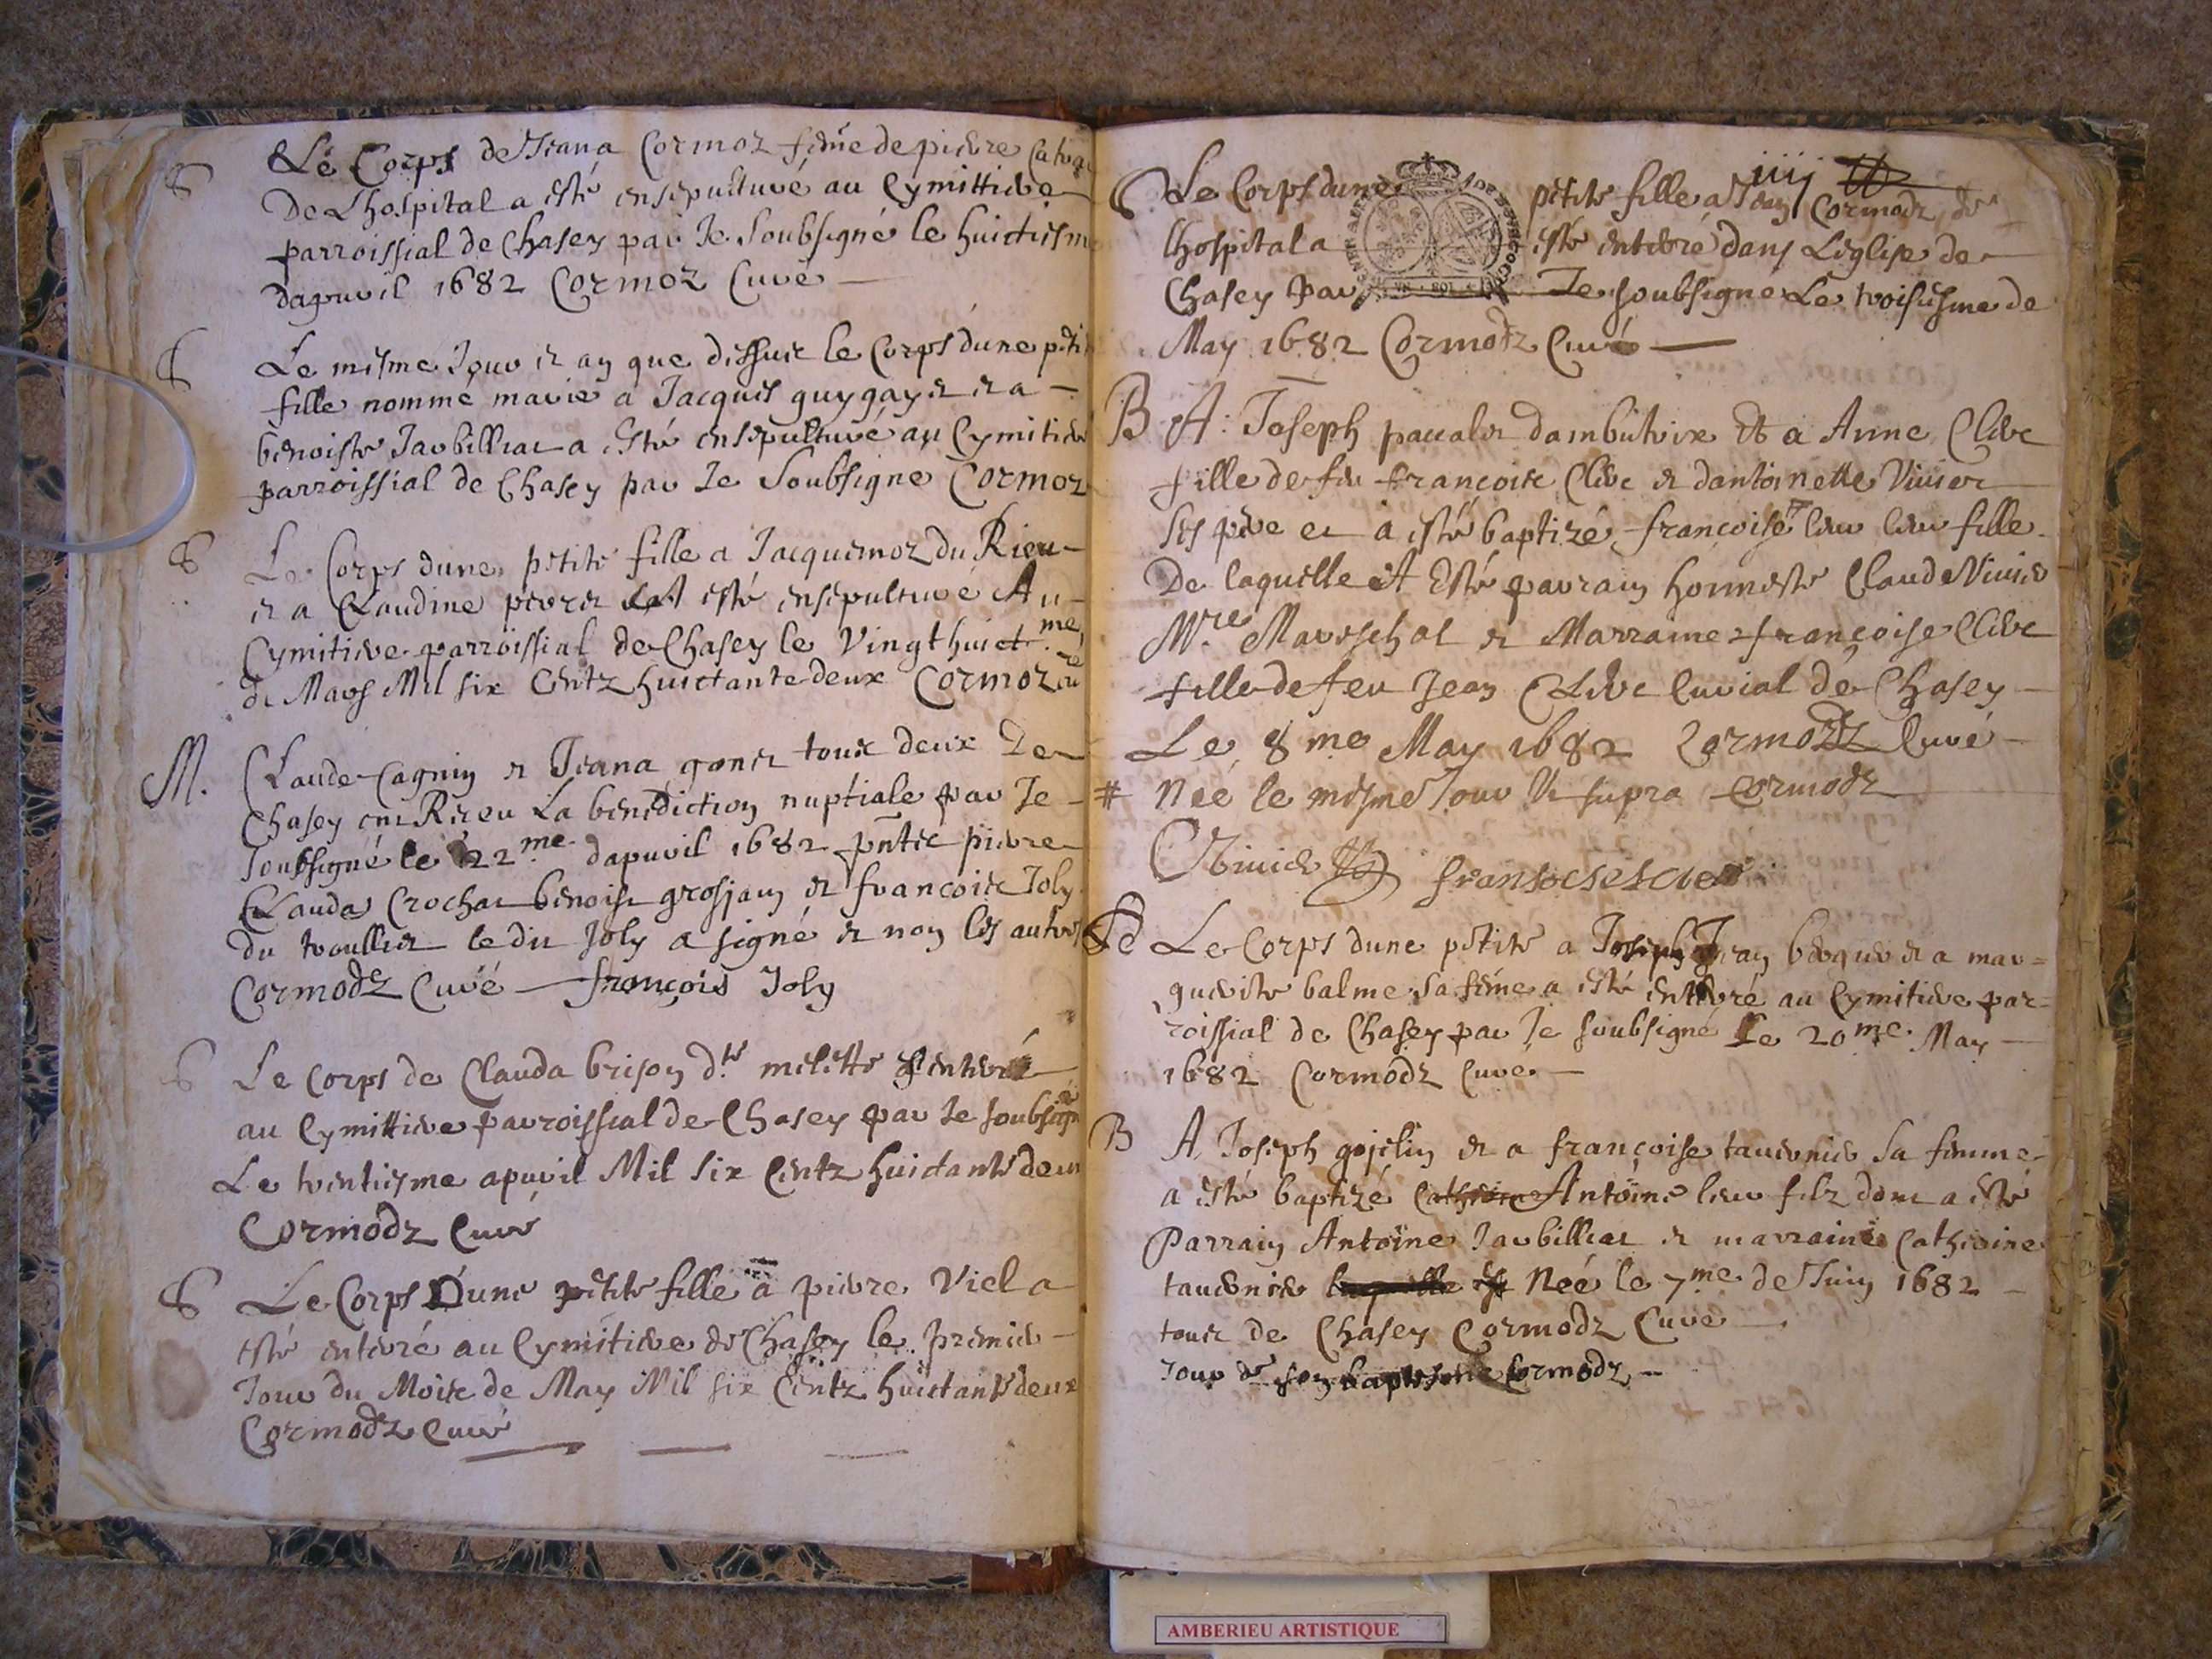 S Le Corps de Jeana Cormoz feme de pierre
De Lhospital a esté ensepulturé au Cymittiere
parroissial de Chasey par Je Soubsigné le huictiesme
dapuril 1682 Cormoz Curé
S Le mesme Jour et an que dessus le Corps dune petit
fille nommé marie a Jacques guygay et a
benoiste Jarbilliat a esté ensepulturé au Cymitiere
parroissial de Chasey par Je Soubsigne Cormoz
S Le Corps dune petite fille a Jacquemoz du Rieu
et a Claudine esté ensepulturé Au
Cymitiere parroissial de Chasey le Vingthuict.me
de Mars Mil six Centz huictante deux Cormoz
M. Claude Cagnin et Jeana gonet tous deux De
Chasey ont Receu La benediction nuptiale par Je
soubsigné le 22me dapuril 1682 pntz pierre
Claude Crochat benoist grosjean et francois Joly
du troullier le dit Joly a signé et non les autres
Cormodz Curé françois Joly
S Le Corps de Clauda brison dte milette enterré
au Cymittiere parroissial de Chasey par Je soubsigné
Le trentiesme apuril Mil six Centz huictante deux
Cormodz Curé
S Le Corps Dune petite fille a pierre Viel a
esté enterré au Cymitiere de Chasey le premier
Jour du Mois de May Mil six Centz huictante deux
Cormodz Curé
iiij
S Le Corps dune petite fille a Jean Cormodz de
lhospital a esté enterré dans Leglise de
Chasey Par Je soubsigne Le troisiesme de
May 1682 Cormodz Curé
B A Joseph paccalet dambutrix Et a Anne Clerc
fille de feu francois Clerc et dantoinette Vivier
ses pere et a esté baptizé françoise leur fille
De laquelle A Esté parrain honneste Claude Vivier
Mre Mareschal et Marraine françoise Clerc
fille de feu Jean Clerc Curial de Chasey
Le 8me May 1682 Cormodz Curé
# Née le mesme Jour Ut supra Cormodz
CVivier
Sé Le Corps dune petite a Joseph Jean berguer et a mar=
guerite balme sa feme a esté enterré au Cymitiere par=
roissial de Chasey par Je soubsigné Le 20me May
1682 Cormodz Curé
B A Joseph gojelin et a françoise tavernier sa femme
a esté baptizé Catherine Antoine leur filz dont a esté
Parrain Antoine Jarbilliat et marraine Catherine
tavernier laquelle est Néé le 7me de Juin 1682
tous de Chasey Cormodz Curé
Jour de son baptesme Cormodz
AMBERIEU ARTISTIQUE